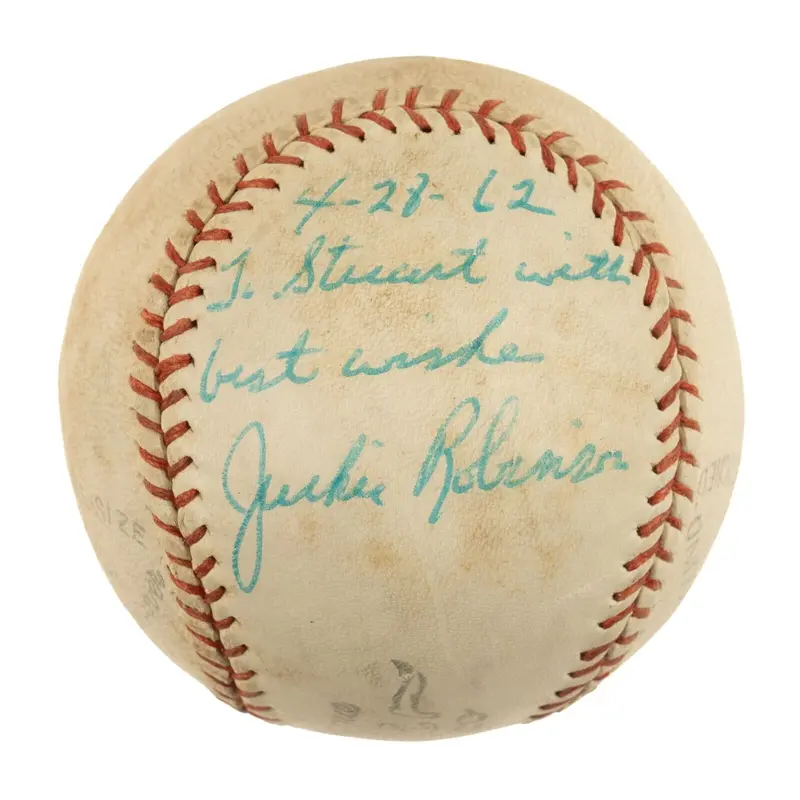 4-28-62
J. Stewart with
best wishe
Jackie Robinson
SIZE